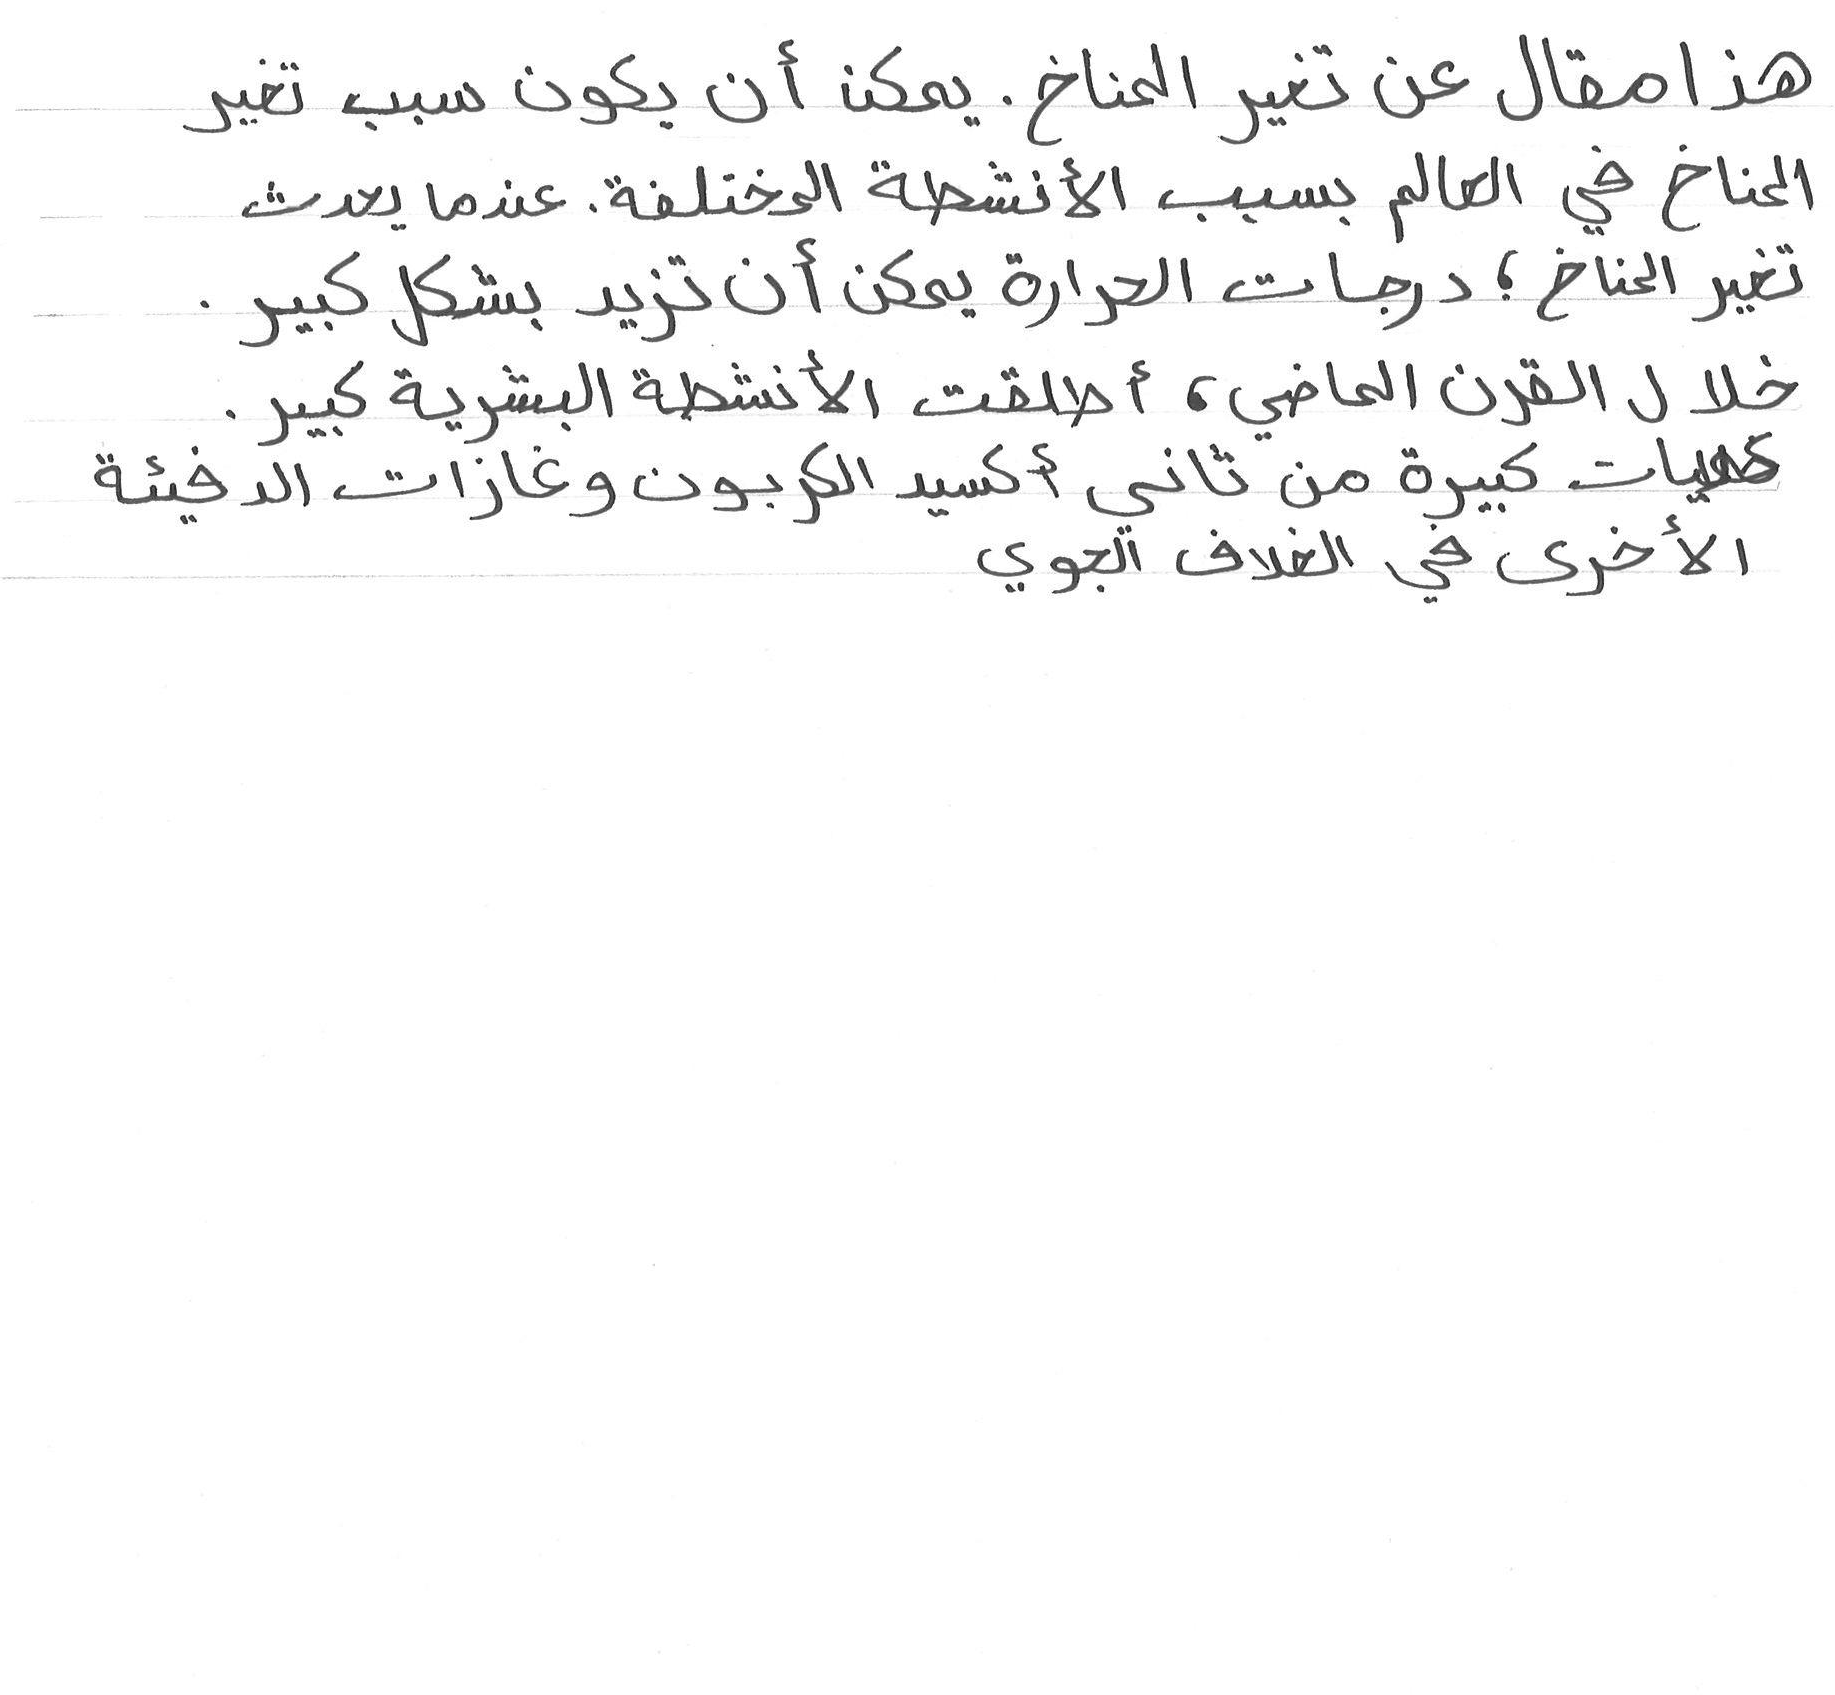 هذا مقال عن تغير المناخ. يمكن أن يكون سبب تغير
المناخ في العالم بسبب الأنشطة المختلفة. عندما يحدث
تغير المناخ؛ درجات الحرارة يمكن أن تزيد بشكل كبير.
خلال القرن الماضي، أطلقت الأنشطة البشرية كبير.
كميات كبيرة من ثاني أكسيد الكربون وغازات الدفيئة
الأخرى في الغلاف الجوي